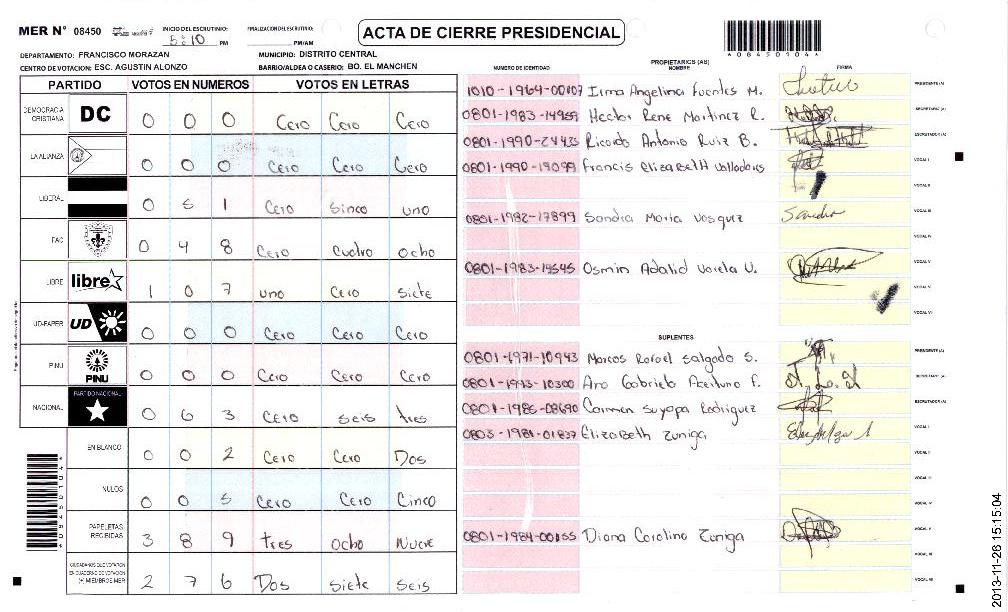 MER N° 08450
INICIO DEL ESCRUTINIO: 5:10 PM
FINALIZACION DEL ESCRUTINIO: PM/AM
ACTA DE CIERRE PRESIDENCIAL
*08450104*
DEPARTAMENTO: FRANCISCO MORAZAN
MUNICIPIO: DISTRITO CENTRAL
CENTRO DE VOTACION: ESC. AGUSTIN ALONZO
BARRIO/ALDEA O CASERIO: BO. EL MANCHEN
PARTIDO VOTOS EN NUMEROS VOTOS EN LETRAS
DEMOCRACIA CRISTIANA DC 0 0 0 Cero Cero Cero
LA ALIANZA 0 0 0 Cero Cero Cero
LIBERAL 0 5 1 Cero Sinco uno
FAC 0 4 8 Cero Cuatro Ocho
LIBRE libre 1 0 7 uno Cero Siete
UD-FAPER UD 0 0 0 Cero Cero Cero
PINU PINU 0 0 0 Cero Cero Cero
NACIONAL PARTIDO NACIONAL 0 6 3 Cero seis tres
EN BLANCO 0 0 2 Cero Cero Dos
NULOS 0 0 5 Cero Cero Cinco
PAPELETAS RECIBIDAS 3 8 9 tres Ocho Nueve
CIUDADANOS QUE VOTARON EN CUADERNO DE VOTACION (+) MIEMBROS MER 2 7 6 Dos siete seis
PROPIETARIOS (AS)
NUMERO DE IDENTIDAD NOMBRE FIRMA
1010-1964-00107 Irma Angelina Fuentes M. PRESIDENTE (A)
0801-1983-14959 Hector Rene Martinez R. SECRETARIO (A)
0801-1990-24433 Ricardo Antonio Ruiz B. ESCRUTADOR (A)
0801-1990-19099 Francis Elizabeth Valladares VOCAL I
VOCAL II
0801-1982-17899 Sandra Maria Vasquez Sandra VOCAL III
VOCAL IV
0801-1983-14545 Osmin Adalid Varela U. VOCAL V
VOCAL VI
SUPLENTES
0801-1971-10943 Marcos Rafael Salgado S. PRESIDENTE (A)
0801-1993-10300 Ana Gabriela Aceituno F. SECRETARIO (A)
0801-1986-08690 Carmen Suyapa Rodriguez ESCRUTADOR (A)
0803-1981-01837 Elizabeth Zuniga VOCAL I
VOCAL II
VOCAL III
VOCAL IV
0801-1984-00155 Diana Carolina Zuniga VOCAL V
2013-11-26 15:15:04